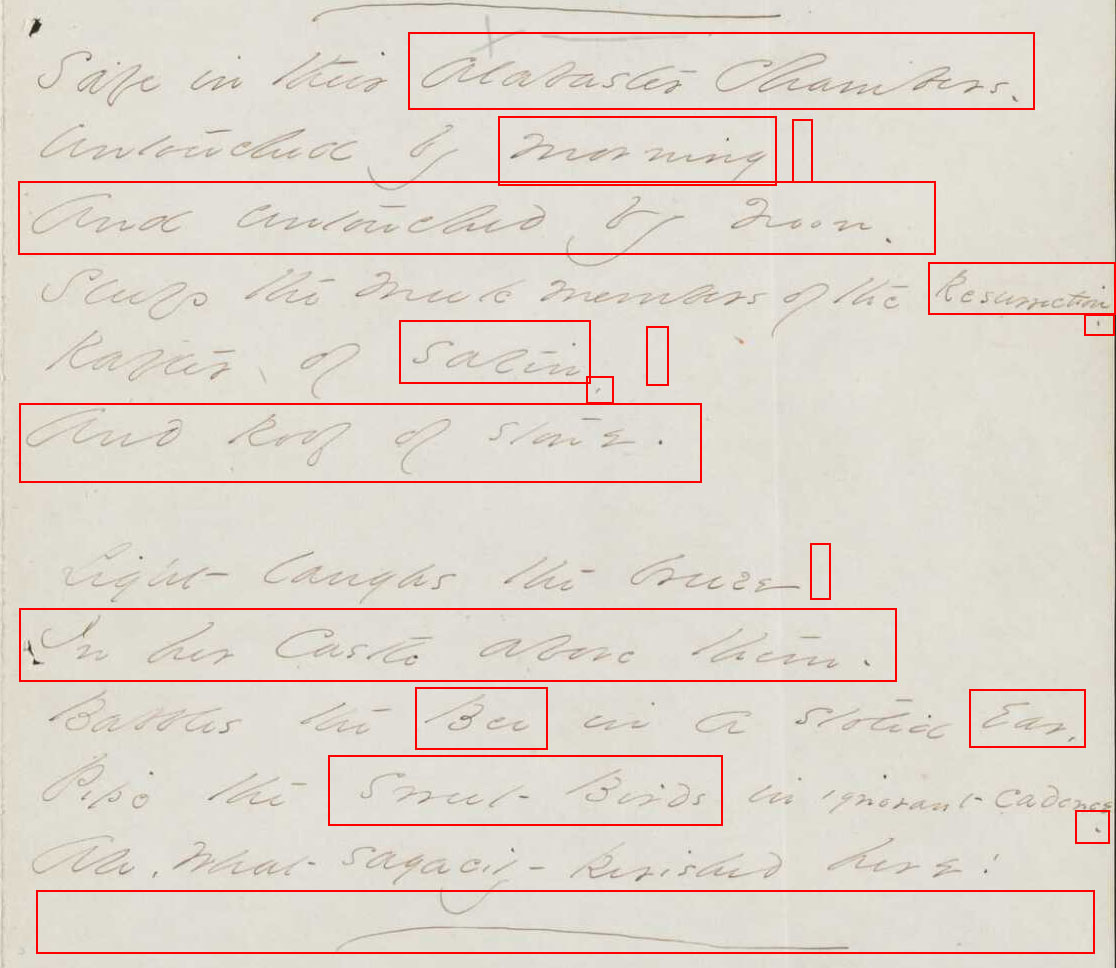 Safe in their Alabaster Chambers.
Untouched by morning
And untouched by noon.
Sleep the meek members of the Resurrection.
Rafter of Satin,
And Roof of stone.
Light laughs the breeze
In her Castle above them.
Babbles the Bee in a stolid Ear,
Pipe the Sweet Birds in ignorant cadence.
Ah, What sagacity perished here!